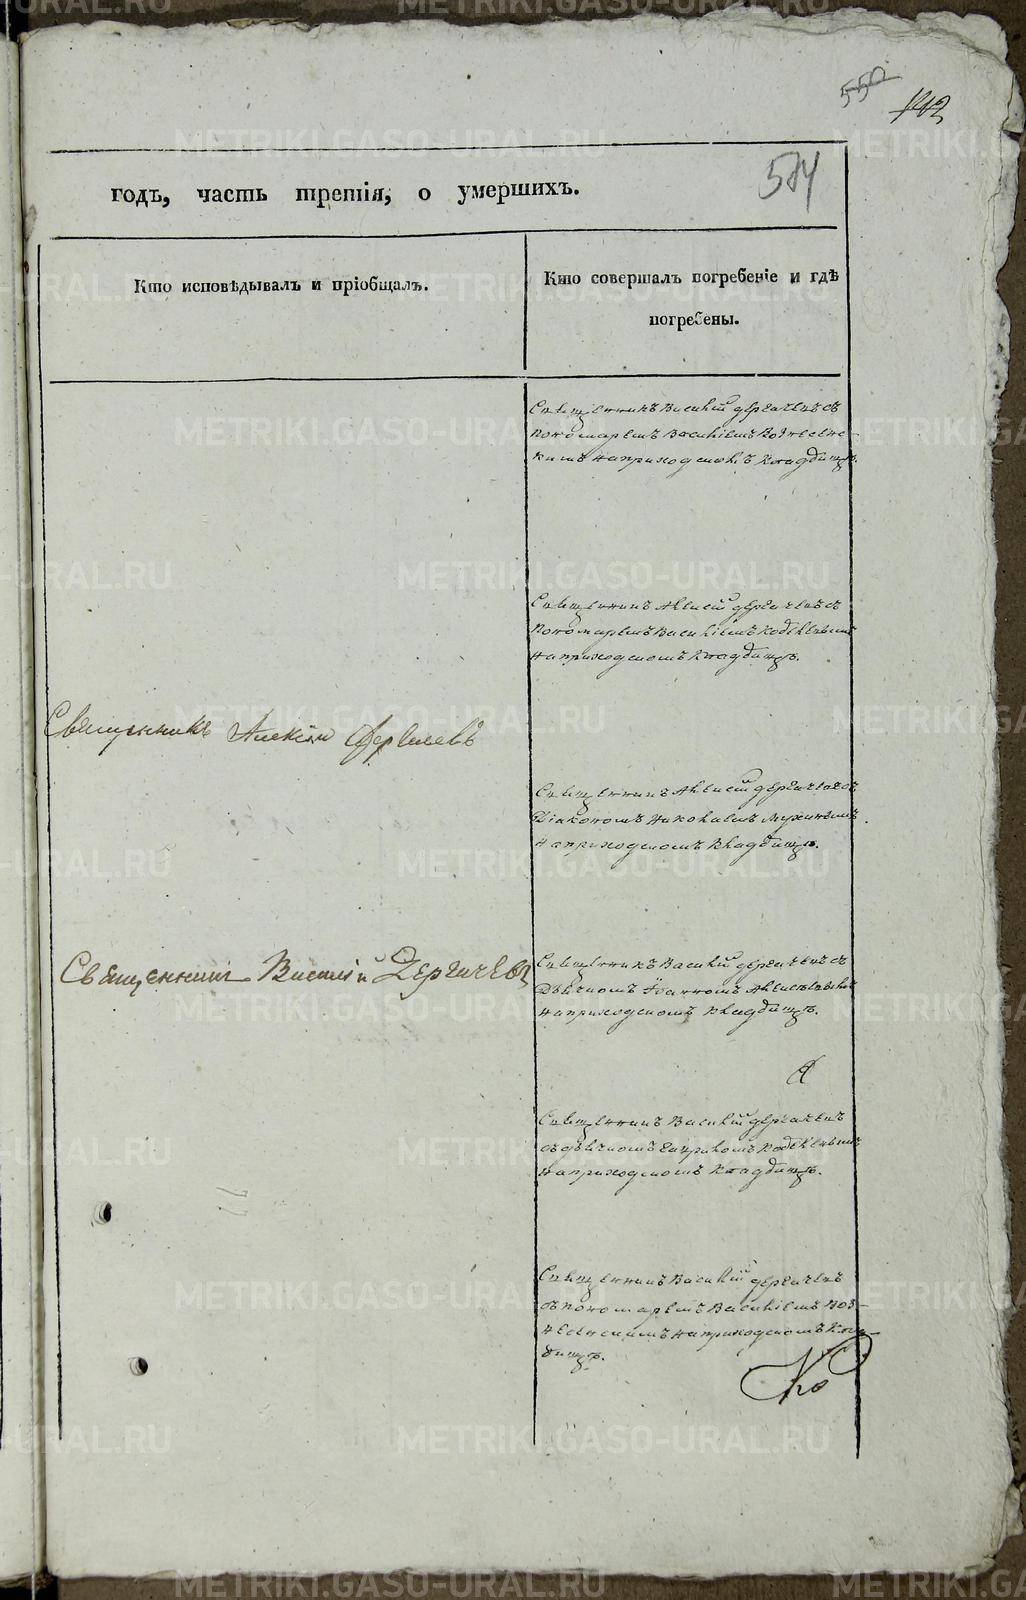 550
142
574
годъ, часть третія, о умершихъ.
Кто исповѣдывалъ и пріобщалъ.
Кто совершалъ погребеніе и гдѣ
погребены.
Священникъ Василій Дергачевъ съ
Пономаремъ Василіемъ Вознесенс-
кимъ на приходскомъ Кладбищѣ.
Священникъ Алексій Дергачевъ съ
Пономаремъ Василіемъ
на приходскомъ Кладбищѣ.
Священникъ Алексій Дергачевъ
Священникъ Алексій Дергачевъ съ
Діакономъ Николаемъ Мухинымъ
на приходскомъ Кладбищѣ.
Священникъ Василій Дергачевъ
Священникъ Василій Дергачевъ съ
Дьячкомъ Іоанномъ
на приходскомъ Кладбищѣ.
Священникъ Василій Дергачевъ
съ дьячкомъ
на приходскомъ Кладбищѣ.
Священникъ Василій Дергачевъ
съ пономаремъ Василіемъ Воз-
несенскимъ на приходскомъ Кла-
дбищѣ.
METRIKI.GASO-URAL.RU